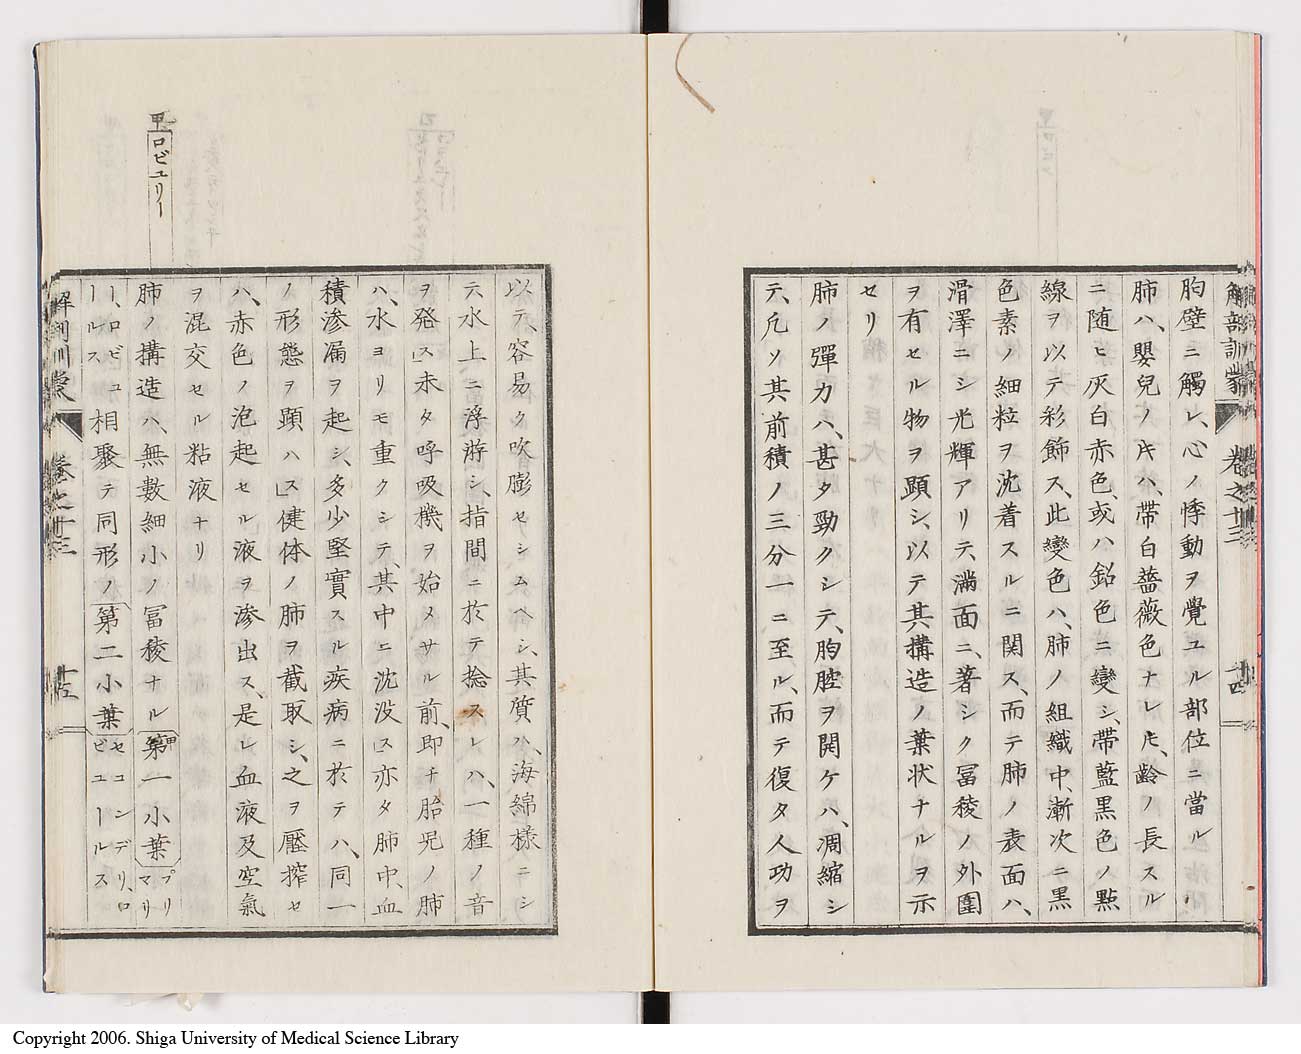 解剖訓蒙 卷之十三 十四
胸壁ニ觸レ、心ノ悸動ヲ覺ユル部位ニ當ル
肺ハ、嬰兒ノ𪜈ハ、帶白薔薇色ナレ𪜈、齡ノ長スル
ニ随ヒ灰白赤色、或ハ鉛色ニ變シ、帶藍黒色ノ㸃
線ヲ以テ彩飾ス、此變色ハ、肺ノ組織中、漸次ニ黒
色素ノ細粒ヲ沈着スルニ関ス、而テ肺ノ表面ハ、
滑澤ニシ光輝アリテ、滿面ニ、著シク冨稜ノ外圍
ヲ有セル物ヲ顕シ、以テ其構造ノ葉状ナルヲ示
セリ
肺ノ彈力ハ、甚タ勁クシテ、胸腔ヲ開ケハ、凋縮シ
テ、凡ソ其前積ノ三分一ニ至ル、而テ復タ人功ヲ
以テ、容易ク吹膨セシムヘシ、其質ハ、海綿様ニシ
テ水上ニ浮游シ、指間ニ於テ捻スレハ、一種ノ音
ヲ発ス」未タ呼吸機ヲ始メサル前、即チ胎兒ノ肺
ハ、水ヨリモ重クシテ、其中ニ沈没ス」亦タ肺中、血
積滲漏ヲ起シ、多少堅實スル疾病ニ於テハ、同一
ノ形態ヲ顕ハス」健体ノ肺ヲ截取シ、之ヲ壓搾セ
ハ、赤色ノ泡起セル液ヲ滲出ス、是レ血液及空氣
ヲ混交セル粘液ナリ
肺ノ構造ハ、無數細小ノ冨稜ナル甲第一小葉プリマリ
ー、ロビュールス相聚テ同形ノ第二小葉セコンデリ、ロビユールス
甲 ロビュリー
解剖訓蒙 卷之十三 十五
Copyright 2006. Shiga University of Medical Science Library